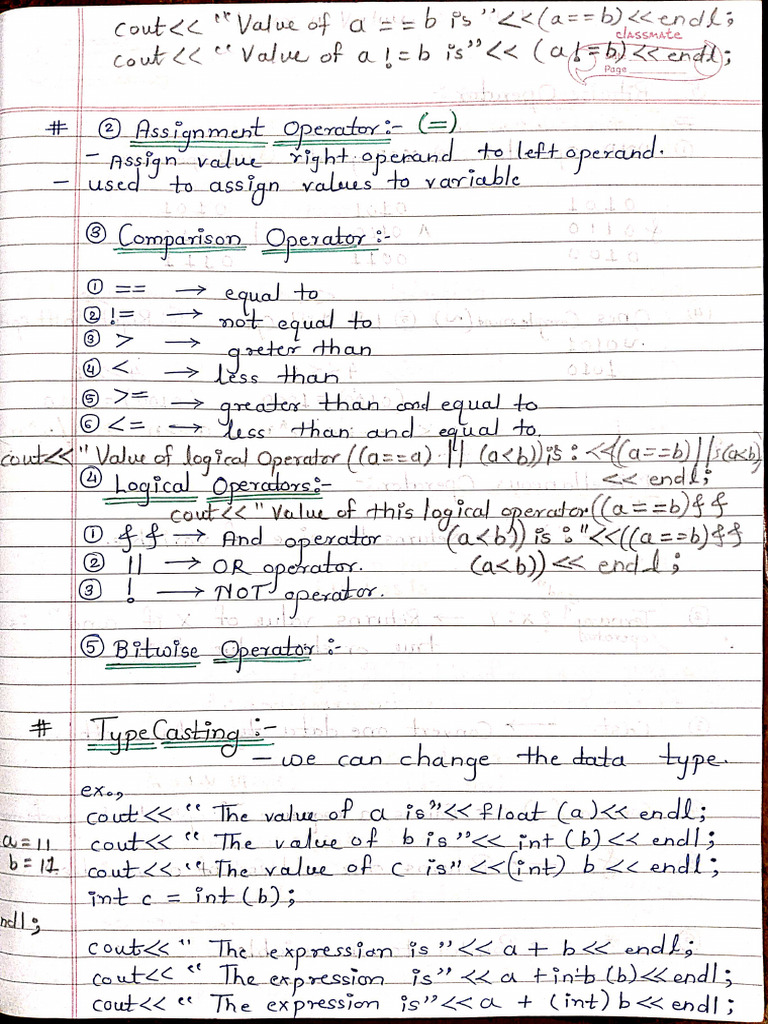 cout<< "Value of a == b is"<<(a==b)<<endl;
classmate
cout<< "Value of a != b is"<< (a!=b)<< endl;
Page
# ② Assignment Operator:- (=)
- Assign value right operand to left operand.
- used to assign values to variable
③ Comparison Operator:-
① == → equal to
② != → not equal to
③ > → greter than
④ < → less than
⑤ >= → greater than and equal to
⑥ <= → less than and equal to.
cout<<"Value of logical Operator ((a==a) || (a<b)) is : <<((a==b)||(a<b)
<< endl;
④ Logical Operators:-
cout<<"Value of this logical operator((a==b)&&
① && → And operator (a<b)) is :"<<((a==b)&&
② || → OR operator. (a<b))<< endl;
③ ! → NOT operator.
⑤ Bitwise Operator :-
# TypeCasting :-
- we can change the data type.
ex.,
cout<< " The value of a is"<< float (a)<< endl;
a = 11
cout<< " The value of b is"<< int (b)<< endl;
b = 11
cout<< "The value of c is"<<(int) b << endl;
int c = int (b);
ndl;
cout<< " The expression is "<< a + b<< endl;
cout<< " The expression is" << a + int (b)<<endl;
cout<< " The expression is"<< a + (int) b<<endl;